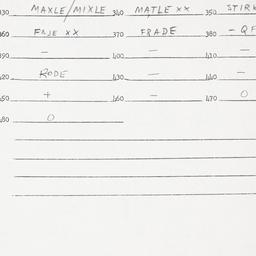 330 MAXLE/MIXLE 340 MATLE xx 350 STIRK
360 FNJE xx 370 FRADE 380 - QF
390 - 400 - 410 -
420 RODE 430 - 440 -
450 + 460 - 470 0
480 0